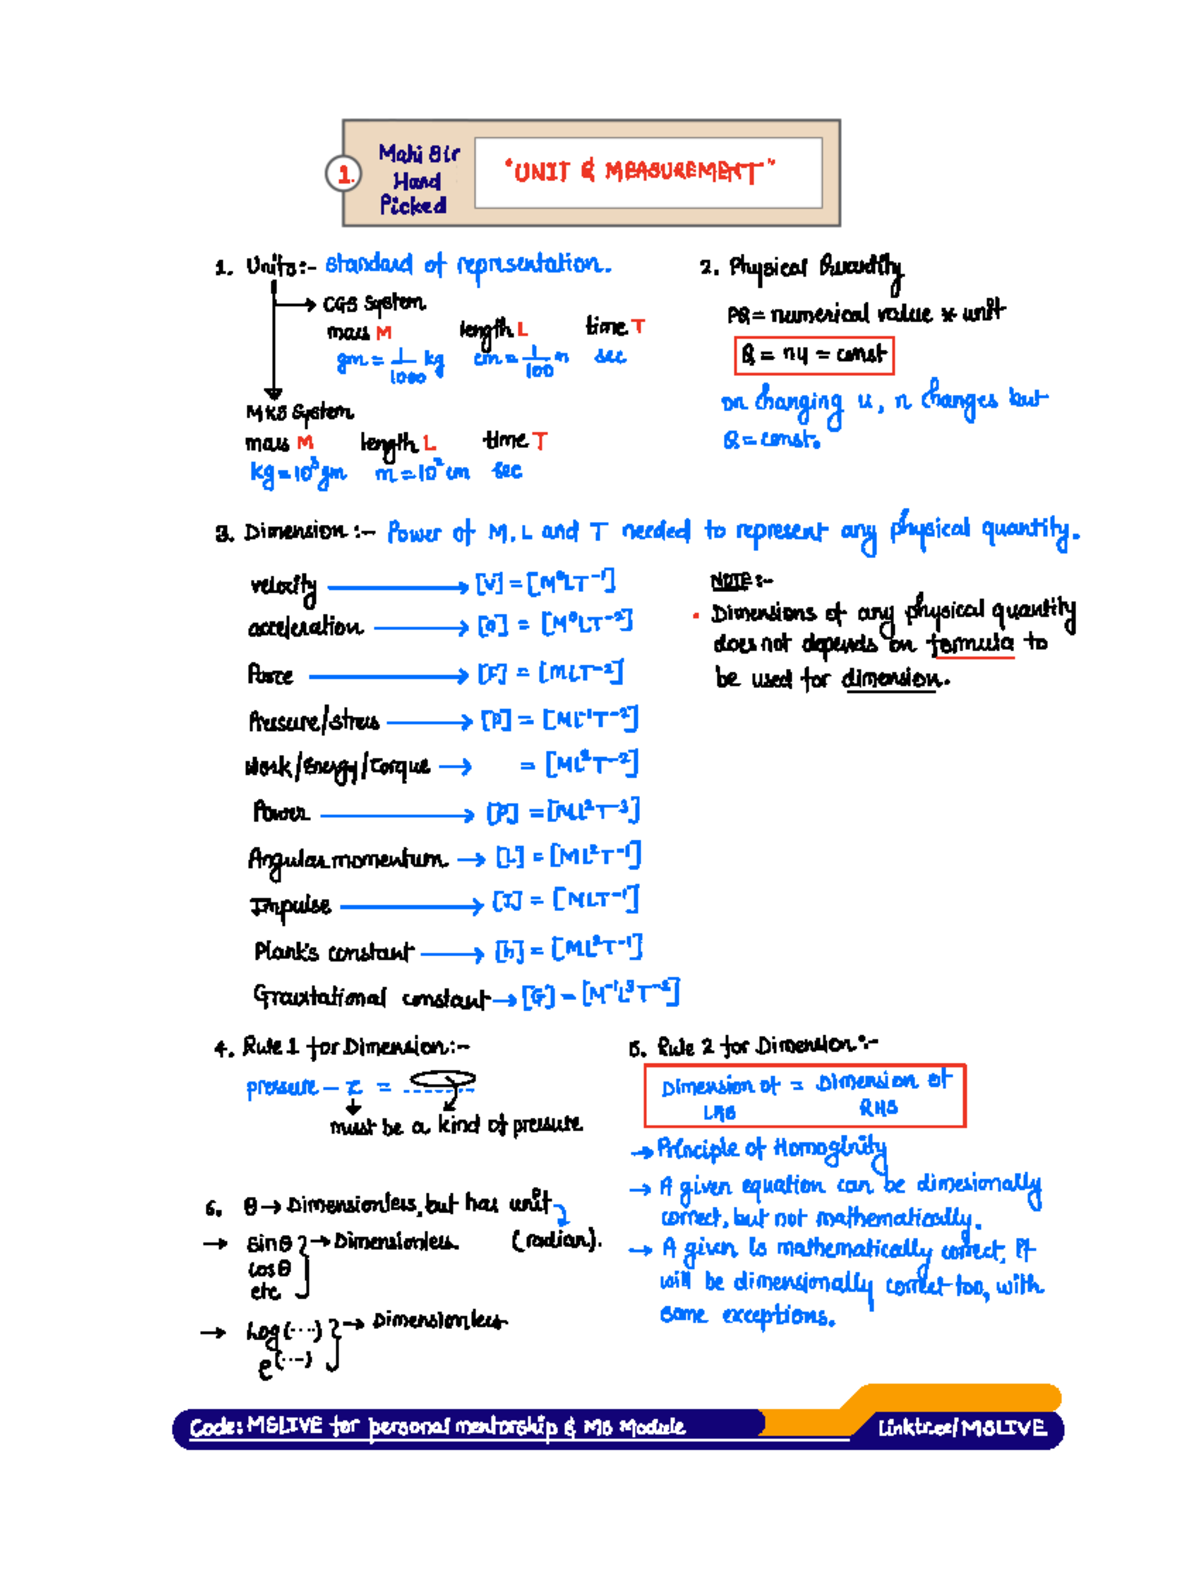 1.
Mahi Sir
Hand
Picked
"UNIT & MEASUREMENT"
1. Units:- standard of representation.
CGS System
mass M length L time T
gm = 1/1000 kg cm = 1/100 m sec
MKS System
mass M length L time T
kg = 10³ gm m = 10² cm sec
2. Physical Quantity
PQ = numerical value × unit
Q = nu = const
on changing u, n changes but
Q = const.
3. Dimension :- Power of M, L and T needed to represent any physical quantity.
velocity → [V] = [M⁰LT⁻¹]
acceleration → [a] = [M⁰LT⁻²]
Force → [F] = [MLT⁻²]
Pressure/stress → [P] = [ML⁻¹T⁻²]
Work/Energy/Torque → = [ML²T⁻²]
Power → [P] = [ML²T⁻³]
Angular momentum → [L] = [ML²T⁻¹]
Impulse → [I] = [MLT⁻¹]
Plank's constant → [h] = [ML²T⁻¹]
Gravitational constant → [G] = [M⁻¹L³T⁻²]
NOTE :-
• Dimensions of any physical quantity
does not depends on formula to
be used for dimension.
4. Rule 1 for Dimension:-
pressure - x =
must be a kind of pressure
5. Rule 2 for Dimension:-
Dimension of = Dimension of
LHS RHS
→ Principle of Homoginity
→ A given equation can be dimesionally
correct, but not mathematically.
→ A given is mathematically correct, it
will be dimensionally correct too, with
some exceptions.
6. θ → Dimensionless, but has unit
(radian).
→ sinθ → Dimensionless.
cosθ
etc
→ Log(....) → Dimensionless
e(...)
Code: MSLIVE for personal mentorship & MS Module
Linktr.ee/MSLIVE